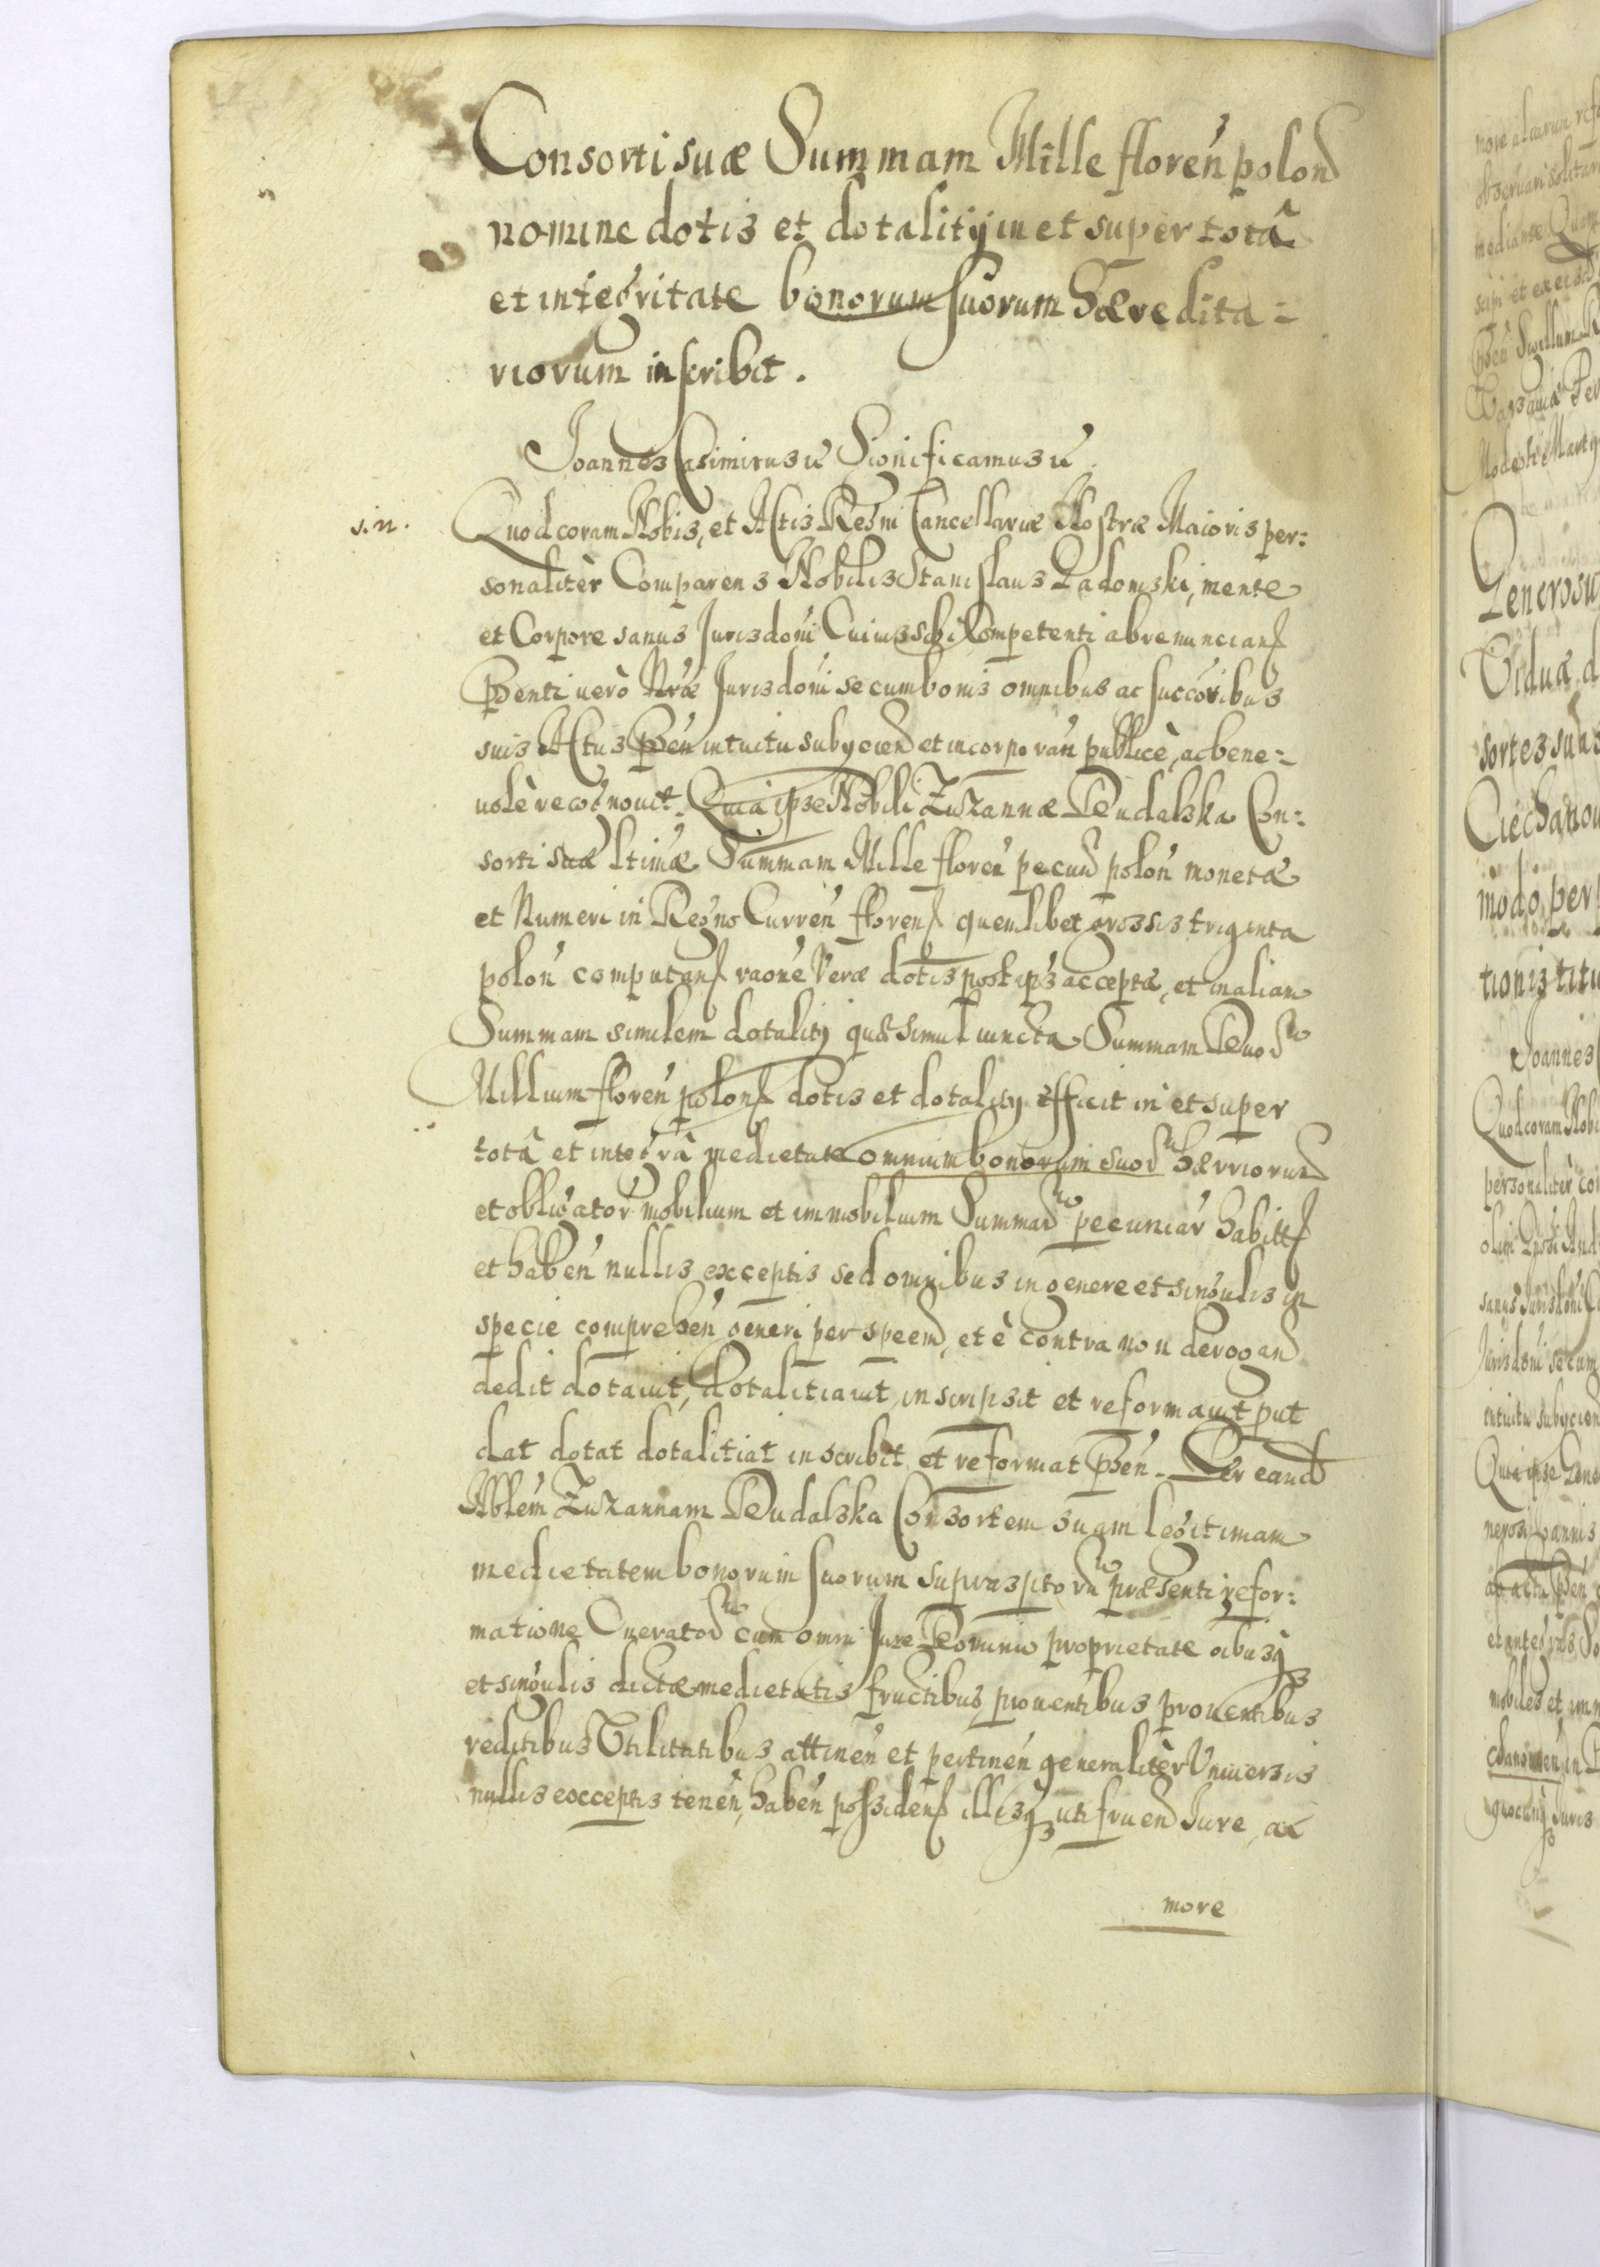 Consorti suæ Summam Mille floren polon
nomine dotis et dotalitij in et super totâ
et integritate bonorum suorum Hæredita=
riorum inscribit.
Joannes Casimirus etc Significamus etc.
s.n.
Quod coram Nobis, et Actis Regni Cancellariæ Nostræ Maioris per:
sonalitèr Comparens Nobilis Stanislaus Ladomski, mente
et Corpore sanus Jurisdoni Cuiusvis sibi Competenti abrenuncians
Pnti verò Nræ Jurisdoni se cum bonis omnibus ac succoribus
suis Actus pñ intuitu subyciend et incorporan publicè, ac bene=
uolè recognouit. Quia ipse Nobili Zuzannæ Dudalska Con:
sorti suæ ltimæ Summam Mille floren pecun polon monetæ
et Numeri in Regno Curren floren quemlibet grossis triginta
polon computan raone Veræ dotis post ips acceptæ, et in aliam
Summam similem dotalitij quæ simul iuncta Summam Duor
Millium floren polon dotis et dotalitij efficit in et super
totâ et integrâ medietate omnium bonorum suor Hærriorum
et obligator mobilium et immobilium Summar pecuniar habit
et haben nullis exceptis sed omnibus in genere et singulis in
specie comprehen generi per speem, et è contra non derogan
dedit dotauit, dotalitiauit, inscripsit et reformauit put
dat dotat dotalitiat inscribit, et reformat pñ. Per eand
Nblem Zuzannam Dudalska Consortem suam legitimam
medietatem bonorum suorum suprascptorum præsenti refor:
matione Onerator cum omni Jure Dominio proprietate oibusq
et singulis dictæ medietatis fructibus, prouentibus prouentibus
reditibus Vtilitatibus attinen et pertinen generalitèr Vniuersis
nullis exceptis tenen, haben possiden illisq utifruen Jure, ac
more